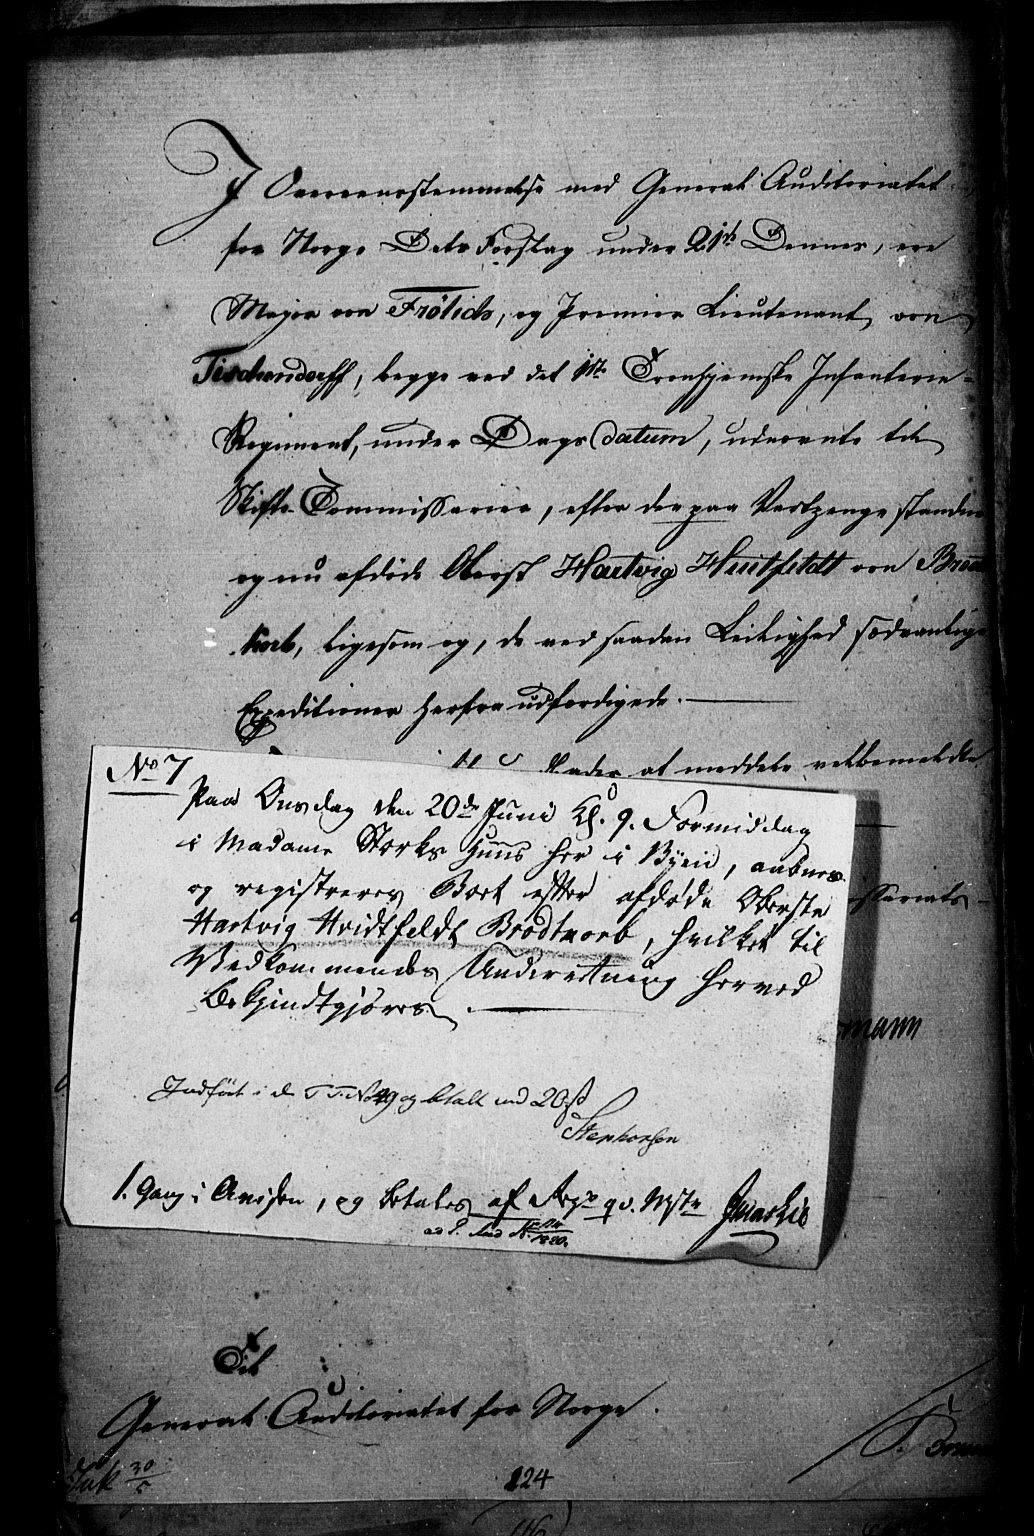 I Overeensstemmelse med General Auditoriatet
for Norge Dets Forslag under 21de Dennes, ere
Major von Frölich, og Premier Lieutenant von
Tischendorff, begge ved det 1ste Tronhjemske Infanterie-
Regiment, under Dags datum, udnevnte til
Skifte-Commissarier, efter den paa Vartpenge standne
og nu afdöde Oberst Hartvig Huitfeldt von
ligesom og, de ved saadan Leilighed sædvanlige
Expeditioner herfra udfærdigede.
at meddele velbemeldte
No 7
Paa Onsdag den 20de Juni Kl. 9. Formiddag
i Madame Storks Huus her i Byen, aabnes
og registreres Boet efter afdøde Oberste
Hartvig Hvidtfeldt Brodtkorb, hvilket til
Vedkommendes Underretning herved
Bekjendtgjøres.
ssariats-
mann
Indført i d T.T. No 49 og betalt med 20 s
Stephansen
1. Gang i Avisen, og betales af
Til
General Auditoriatet for Norge.
30/5
124